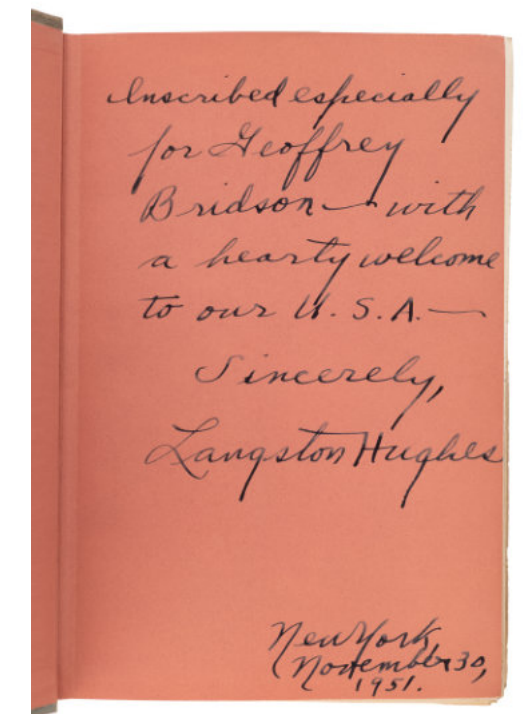 Inscribed especially
for Geoffrey
Bridson — with
a hearty welcome
to our U.S.A. —
Sincerely,
Langston Hughes
New York,
November 30,
1951.